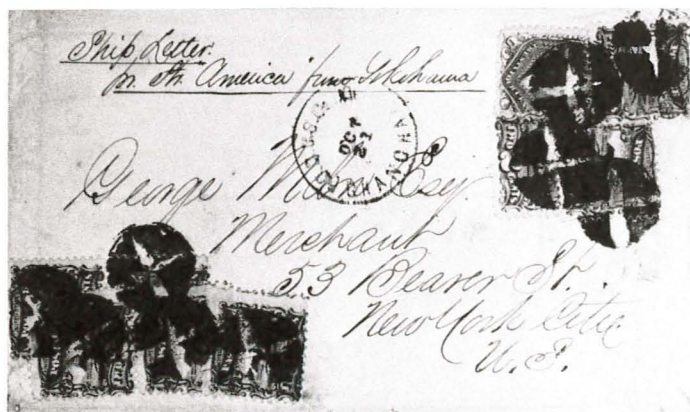 Ship Letter.
pr. Str. America from Yokohama
SHANGHAI
OCT
22
George Esq
Merchant
53 Beaver St.
New York Citie
U.S.